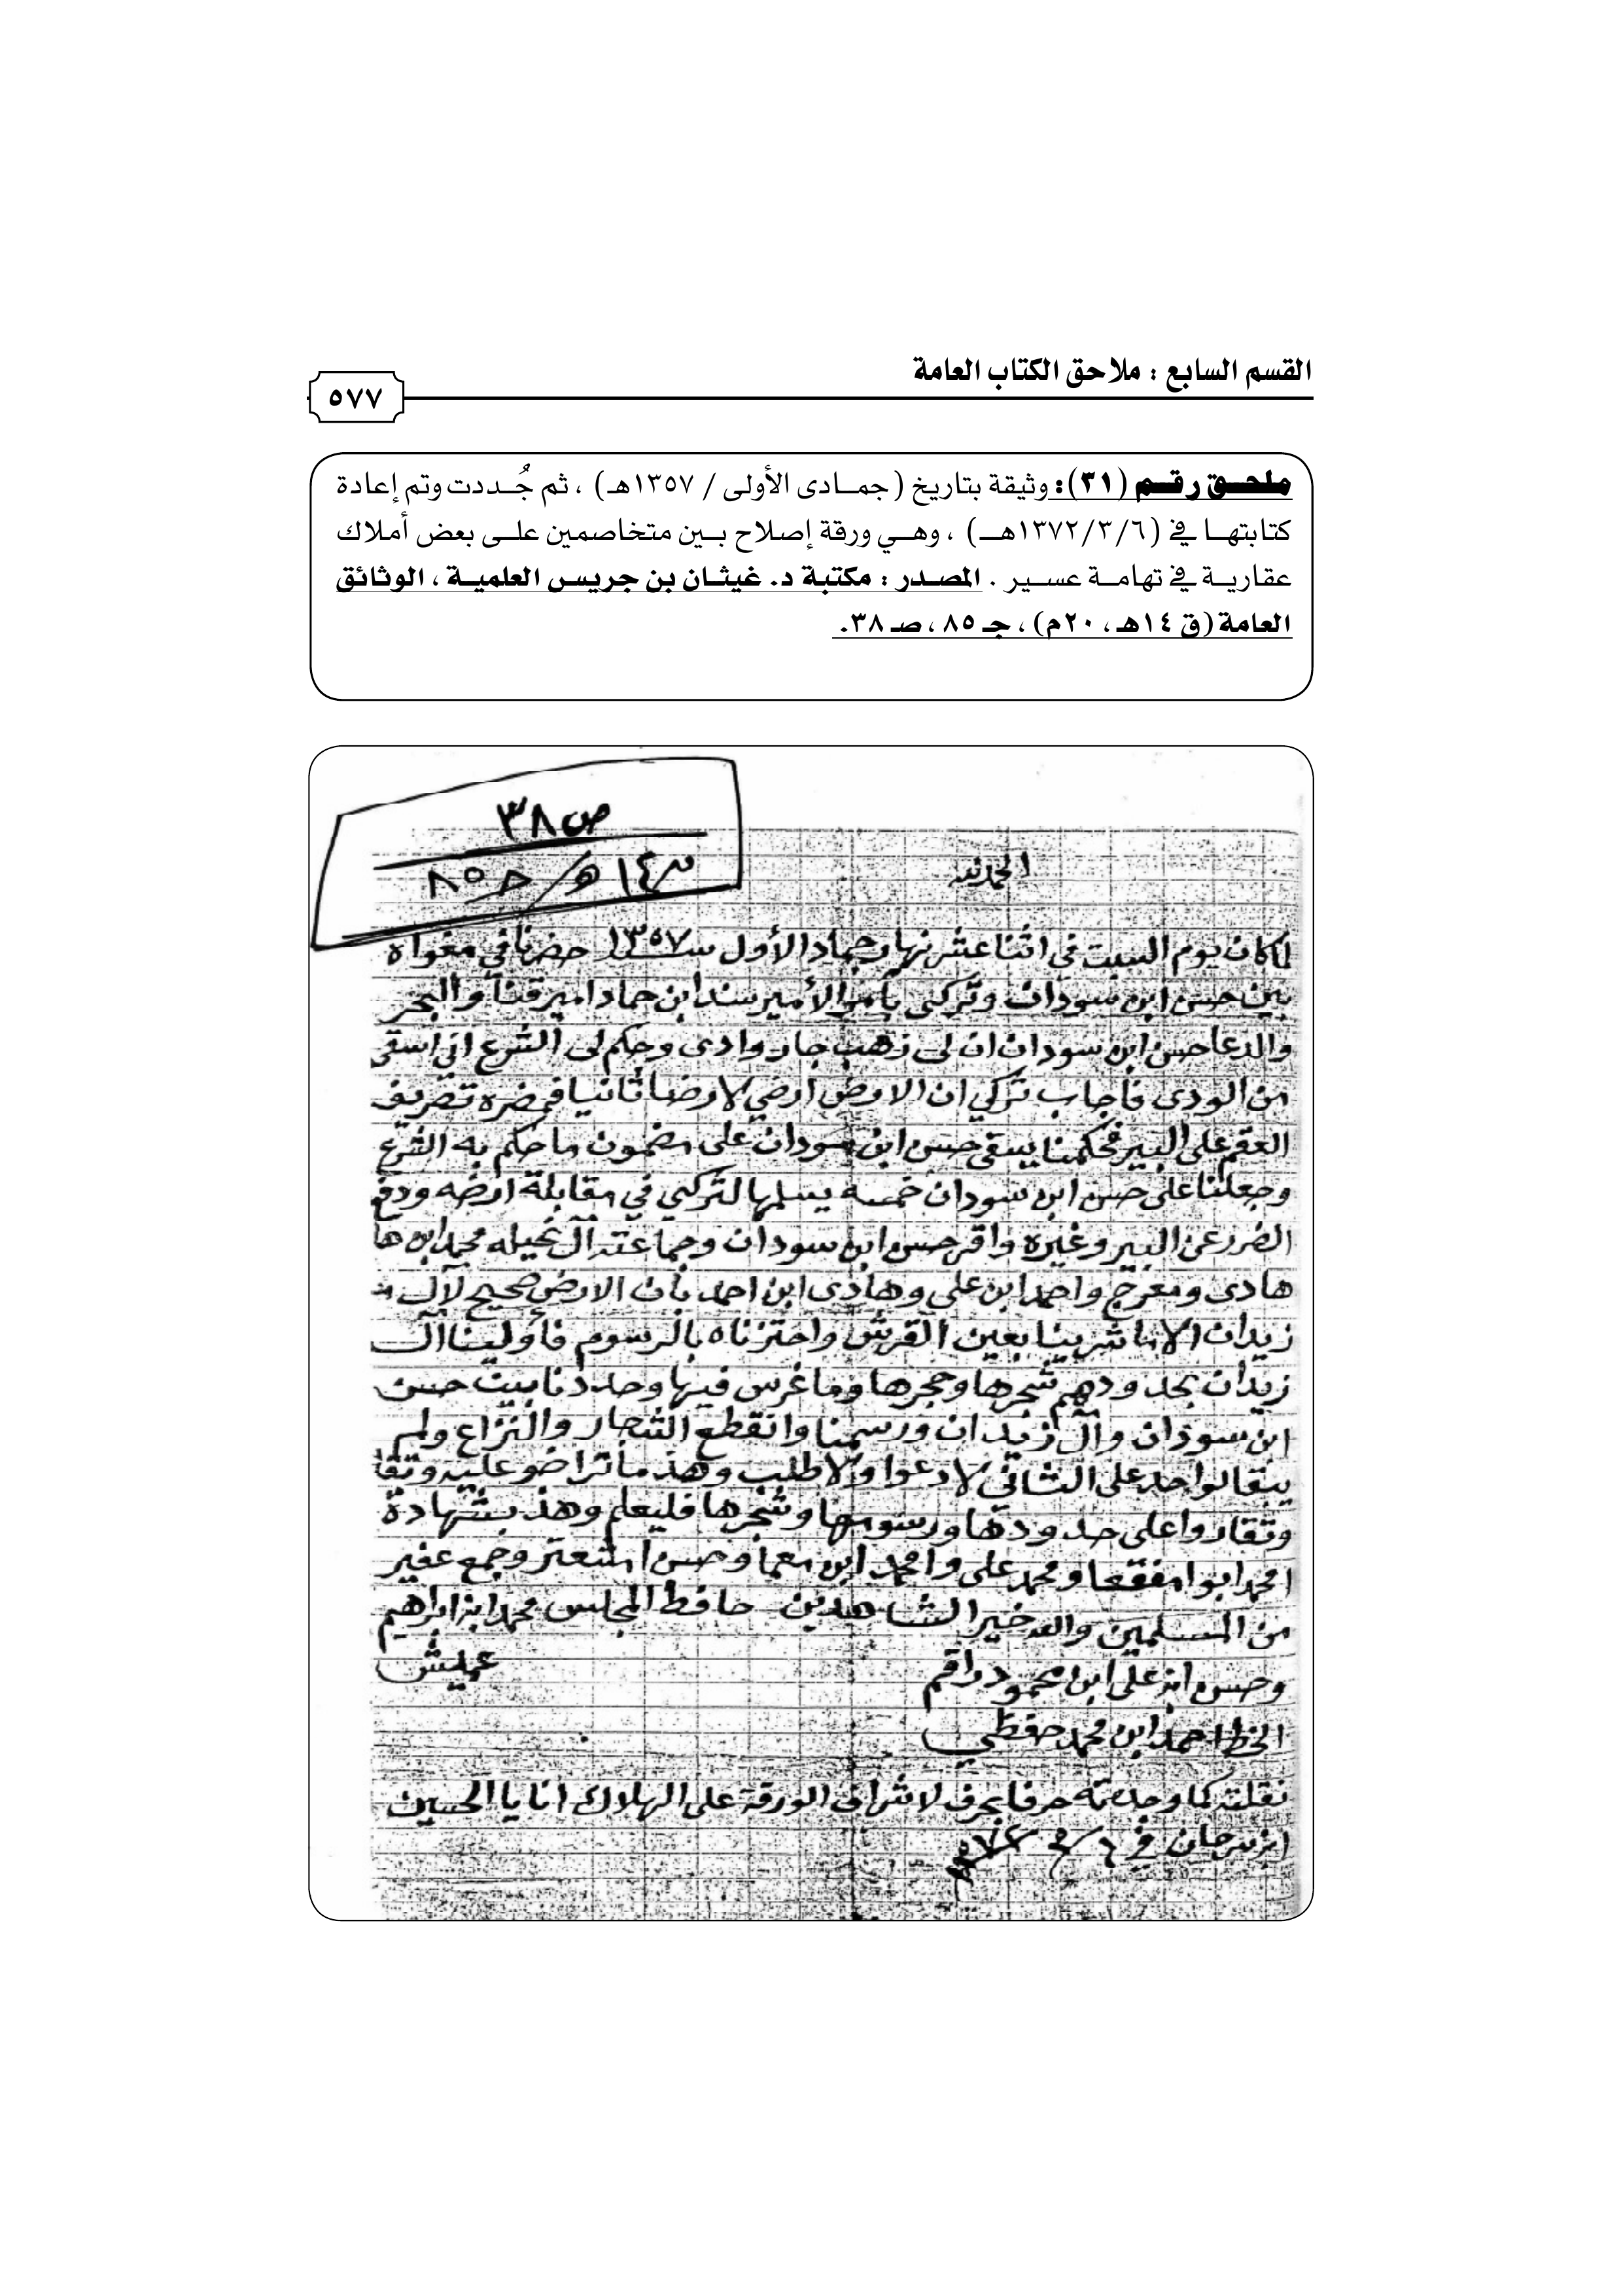 القسم السابع : ملاحق الكتاب العامة
٥٧٧
ملحق رقم (٣١): وثيقة بتاريخ (جمادى الأولى / ١٣٥٧هـ) ، ثم جُددت وتم إعادة
كتابتها في (١٣٧٢/٣/٦هـ) ، وهي ورقة إصلاح بين متخاصمين على بعض أملاك
عقارية في تهامة عسير . المصدر : مكتبة د. غيثان بن جريس العلمية ، الوثائق
العامة (ق ١٤هـ ، ٢٠م) ، جـ ٨٥ ، صـ ٣٨.
ص ٣٨
١٤ هـ / ج ٨٥
الحمد لله
لما كان يوم السبت في اثنا عشر نهار جماد الأول سنة ١٣٥٧ حضرنا في مغواه
بين حسن ابن سودان وتركي بأمر الأمير سند ابن حماد امير قنا والبحر
والدعا حسن ابن سودان ان لي زهب جار وادى وحكم لي الشرع اني اسقي
من الودى فأجاب تركي ان الارض ارضي لارضا ثانيا فمضره تضريف
العقم على البير فحكمنا يسقي حسن ابن سودان على مضمون ما حكم به الشرع
وجعلنا على حسن ابن سودان خمسه يسلمها لتركي في مقابلة ارضه ودفع
الضرر عن البير وغيره واقر حسن ابن سودان وجماعته آل نحيله محمد ابن ها
هادى ومعرج واحمد ابن علي وهادى ابن احمد بأن الارض صحيح لآل
زيدان الا انا شرينا بعين القرش واحتزناه بالرسوم فأولينا آل
زيدان بحدودهم شجرها وحجرها وما غرس فيها وحددنا بيت حسن
ابن سودان وآل زيدان ورسمنا وانقطع الشجار والنزاع ولم
يبقا لواحد على الثاني لا دعوا ولا طلب وهذ ما تراضو عليه وتقا
وتقاروا على حدودها ورسومها وشجرها فليعلم وهذ بشهادة
محمد ابوا مفقعا ومحمد علي وامحمد ابن معما وحسن وجمع غفير
من المسلمين والله خير الشاهدين حافظ المجلس محمد ابن ابراهيم
عميش
وحسن ابن علي ابن محمود راقم
الخط احمد ابن محمد حفظي
نقلته كما وجدته حرفا بحرف الورقة على الهلاك انا يا الحسين
ابن سرحان في ٦ / ٣ / ٧٢